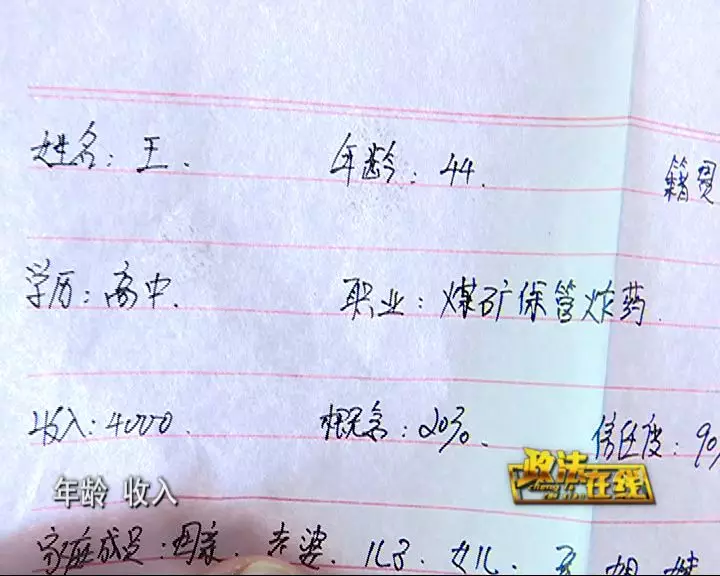 姓名：王． 年龄：44． 籍贯
学历：高中． 职业：煤矿保管炸药．
收入：4000． 概念：20%． 信任度：90%
政法在线
年龄 收入
家庭成员：母亲．老婆．儿子．女儿．